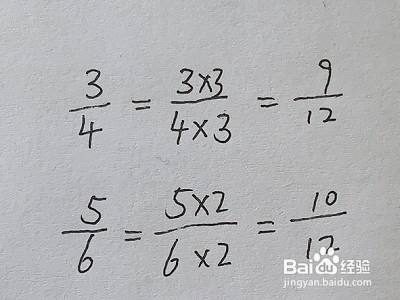 3/4 = 3×3/4×3 = 9/12
5/6 = 5×2/6×2 = 10/12
Baidu 经验
jingyan.baidu.com